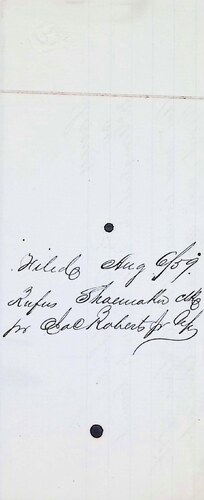 Filed Aug 6/59
Rufus Shoemaker Clk
pr Isac Roberts jr Dpt